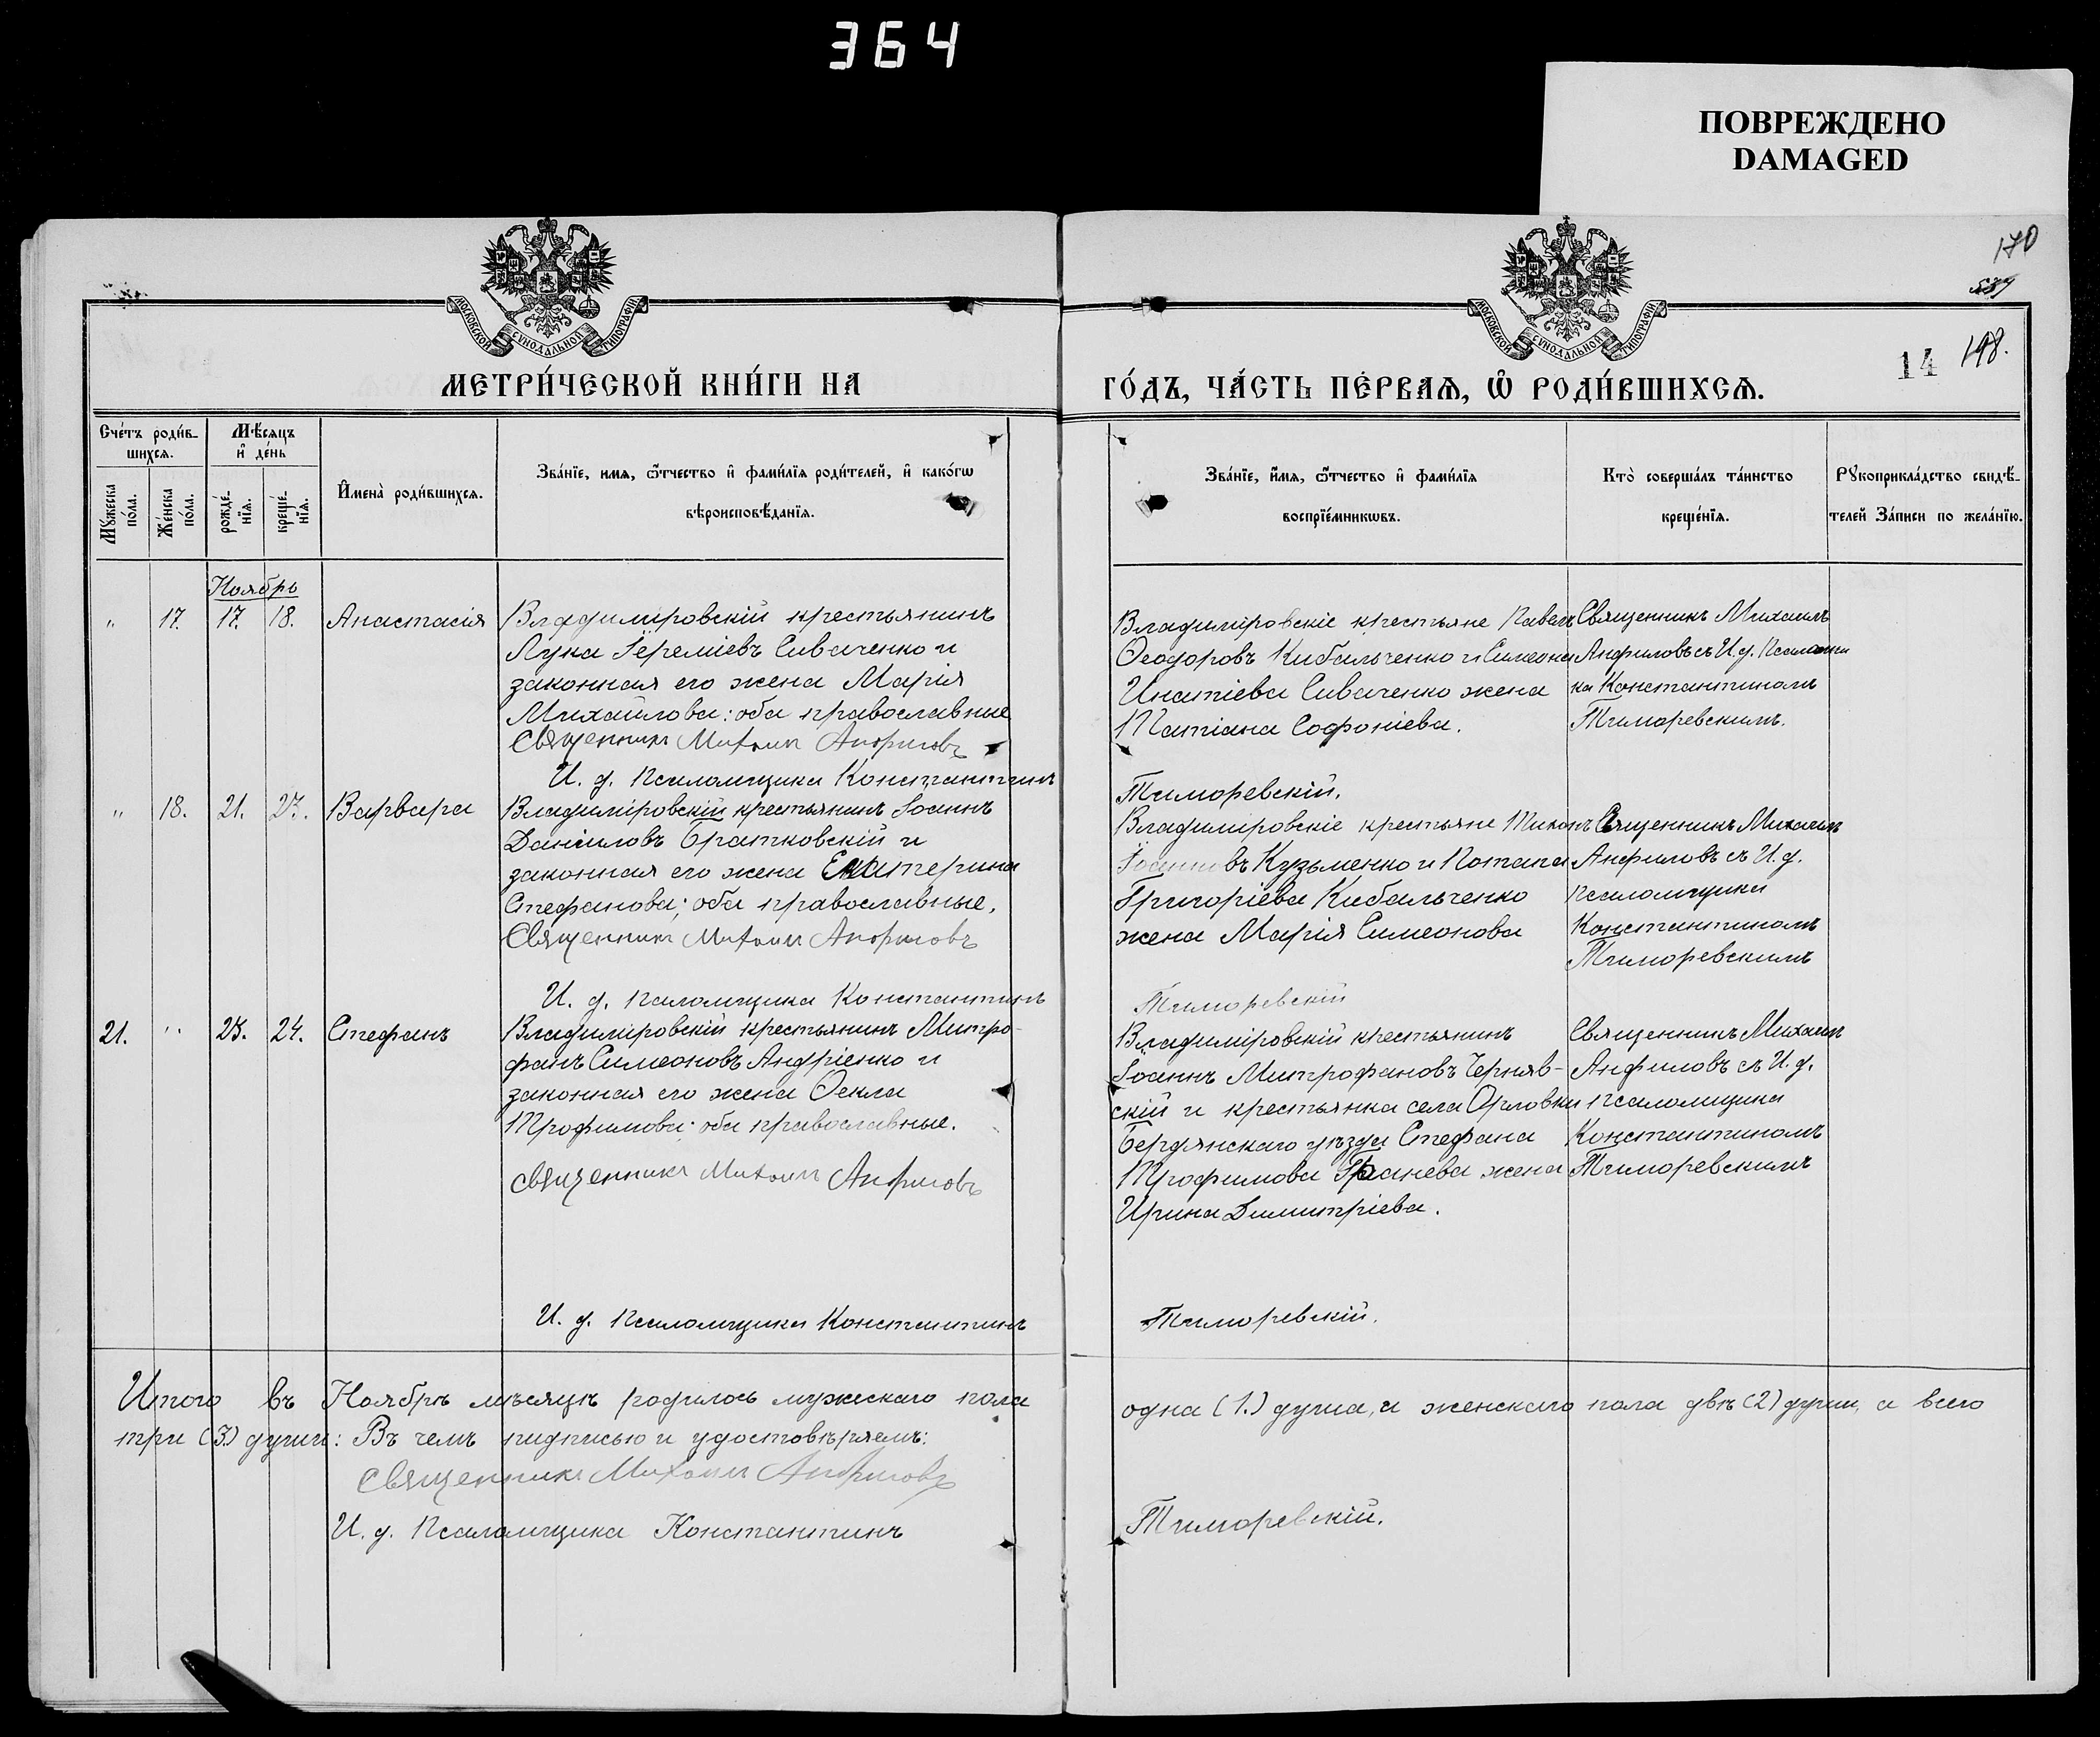 364
ПОВРЕЖДЕНО
DAMAGED
170
МОСКОВСКОЙ СУНОДАЛЬНОЙ ТИПОГРАФІИ
МОСКОВСКОЙ СУНОДАЛЬНОЙ ТИПОГРАФІИ
14 198.
МЕТРИ́ЧЕСКОЙ КНИ́ГИ НА
ГО́ДЪ, ЧА́СТЬ ПЕ́РВАѦ, Ѿ РОДИ́ВШИХСѦ.
Сче́тъ роди́в-
шихсѧ.
Мꙋ́жеска по́ла.
Же́нска по́ла.
Мѣ́сѧцъ
и҆ де́нь
рожде́-
нїѧ.
креще́-
нїѧ.
И҆мена̀ роди́вшихсѧ.
Зва́нїе, имѧ, ѻ҆́тчество и҆ фами́лїѧ роди́телей, и҆ како́гѡ
вѣроисповѣ́данїѧ.
Зва́нїе, и҆́мѧ, ѻ҆́тчество и҆ фами́лїѧ
воспрїе́мникѡвъ.
Кто̀ соверша́лъ та́инство
креще́нїѧ.
Рꙋкоприкла́дство свидѣ́-
телей За́писи по жела́нїю.
Ноябрь
" 17. 17. 18. Анастасія
Владиміровскій крестьянинъ
Лука Іереміевъ Сиваченко и
законная его жена Марія
Михайлова: оба православные
Священникъ Михаилъ Анфиловъ
И. д. Псаломщика Константинъ
Владиміровскіе крестьяне Павелъ
Ѳеодоровъ Кибальченко и Симеона
Игнатіева Сиваченко жена
Татіана Софоніева.
Тиморевскій.
Священникъ Михаилъ
Анфиловъ съ И. д. Псаломщи
ка Константиномъ
Тиморевскимъ.
" 18. 21. 23. Варвара
Владиміровскій крестьянинъ Іоаннъ
Даніиловъ Братковскій и
законная его жена Екатерина
Стефанова; оба православные.
Священникъ Михаилъ Анфиловъ
И. д. псаломщика Константинъ
Владиміровскіе крестьяне Тихонъ
Іоанновъ Кузьменко и Потапа
Григоріева Кибальченко
жена Марія Симеонова
Тиморевскій
Священникъ Михаилъ
Анфиловъ съ И. д.
псаломщика
Константиномъ
Тиморевскимъ
21. " 23. 24. Стефанъ
Владиміровскій крестьянинъ Митро-
фанъ Симеоновъ Андріенко и
законная его жена Ѳекла
Трофимова: оба православные.
Священникъ Михаилъ Анфиловъ
И. д. Псаломщика Константинъ
Владиміровскій крестьянинъ
Іоаннъ Митрофановъ Черняв-
скій и крестьянка села Орловки
Бердянскаго уѣзда Стефана
Трофимова жена
Ирина Димитріева.
Тиморевскій.
Священникъ Михаилъ
Анфиловъ съ И. д.
псаломщика
Константиномъ
Тиморевскимъ
Итого въ Ноябрѣ мѣсяцѣ родилось мужескаго пола
одна (1.) душа, а женскаго пола двѣ (2) души, а всего
три (3.) души: Въ чемъ подписью и удостовѣряемъ:
Священникъ Михаилъ Анфиловъ
И. д. Псаломщика Константинъ
Тиморевскій.